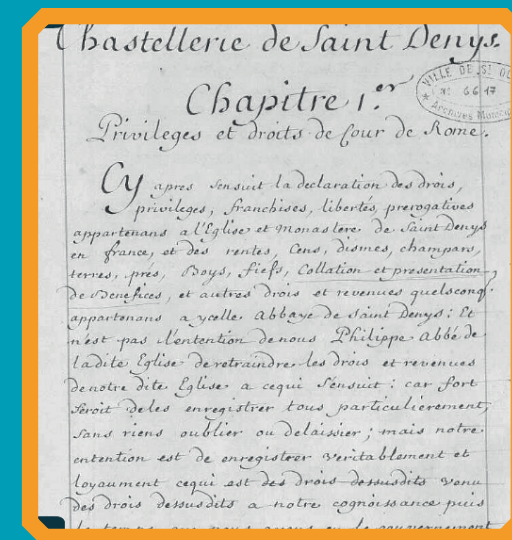 Chastellerie de Saint Denys.
VILLE DE ST
N° 66 17
Archives
Chapitre 1.er
Privileges et droits de Cour de Rome.
Cy apres sensuit la declaration des drois,
privileges, franchises, libertés, prerogatives
appartenans a l'Eglise et monastere de Saint Denys
en france, et des rentes, Cens, dismes, champars,
terres, prés, Boys, fiefs, Collation et presentation
de Benefices, et autres drois et revenues quelsconq.
appartenans a ycelle abbaye de Saint Denys; Et
n'est pas l'entention de nous Philippe abbé de
ladite Eglise de retraindre les drois et revenues
de notre dite Eglise a cequi sensuit: car fort
seroit deles enregistrer tous particulierement,
sans riens oublier ou delaissier; mais notre
entention est de enregistrer veritablement et
loyaument cequi est des drois dessusdits venu
des drois dessusdits a notre cognoissance puis
le temps que nous avons eu le gouvernement